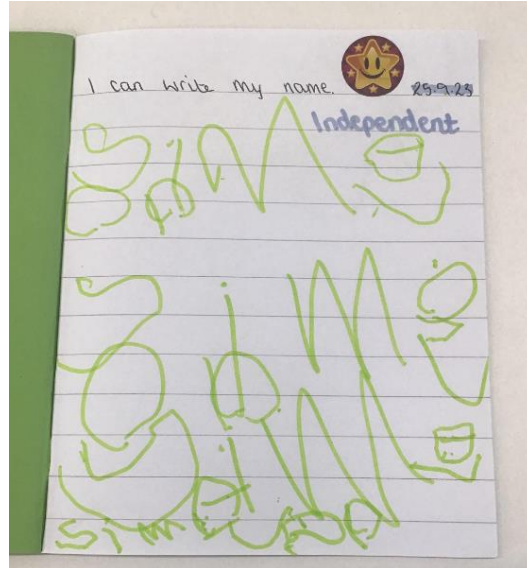 I can write my name. 25.9.23
Independent
Sime
Sime
Sime
sime